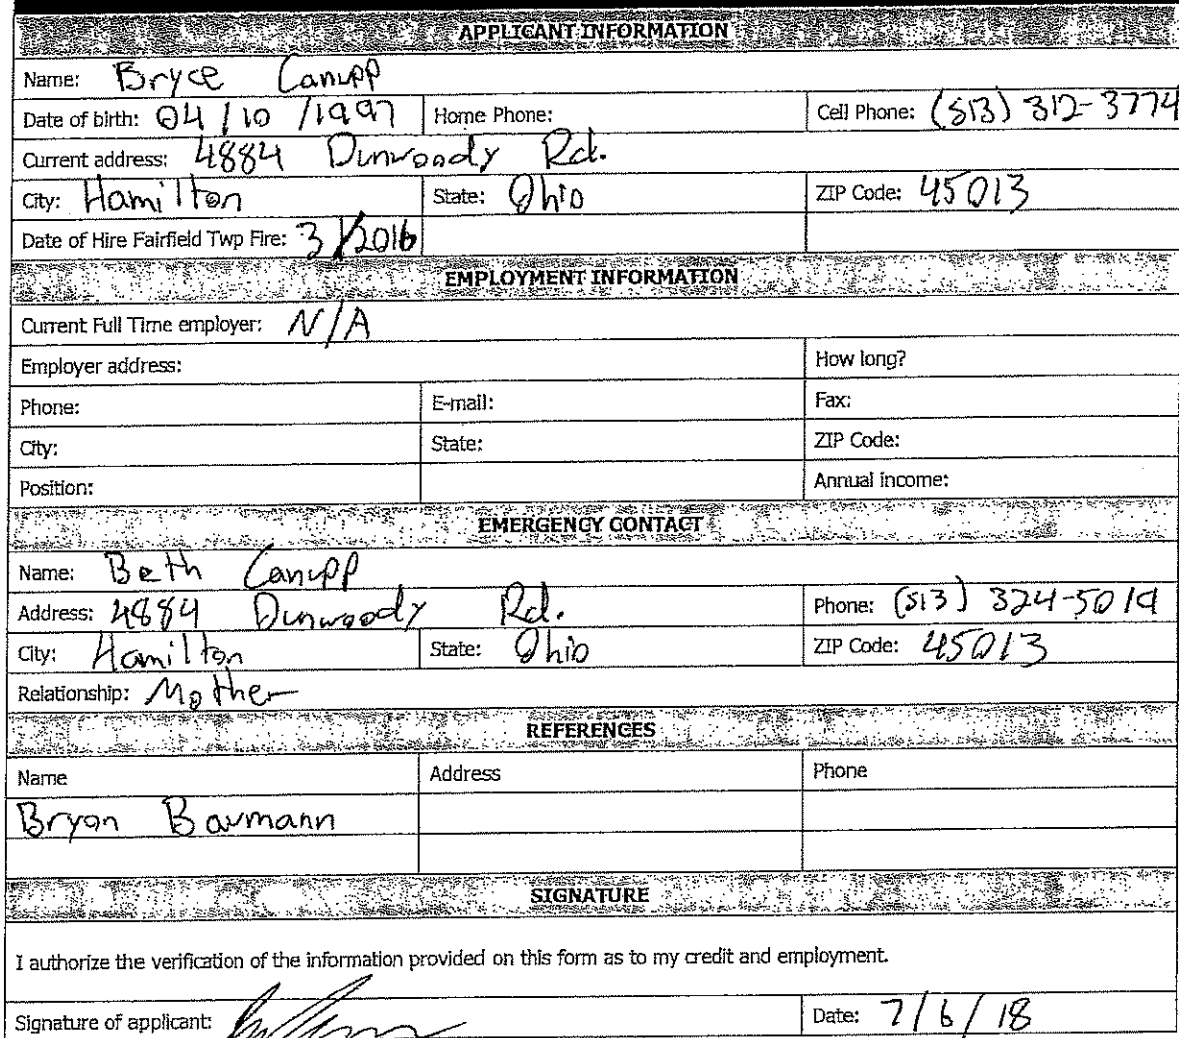 APPLICANT INFORMATION
Name: Bryce Canupp
Date of birth: 04/10/1997 Home Phone: Cell Phone: (513) 312-3774
Current address: 4884 Dunwoody Rd.
City: Hamilton State: Ohio ZIP Code: 45013
Date of Hire Fairfield Twp Fire: 3/2016
EMPLOYMENT INFORMATION
Current Full Time employer: N/A
Employer address: How long?
Phone: E-mail: Fax:
City: State: ZIP Code:
Position: Annual income:
EMERGENCY CONTACT
Name: Beth Canupp
Address: 4884 Dunwoody Rd. Phone: (513) 324-5019
City: Hamilton State: Ohio ZIP Code: 45013
Relationship: Mother
REFERENCES
Name Address Phone
Bryan Baumann
SIGNATURE
I authorize the verification of the information provided on this form as to my credit and employment.
Signature of applicant: Date: 7/6/18